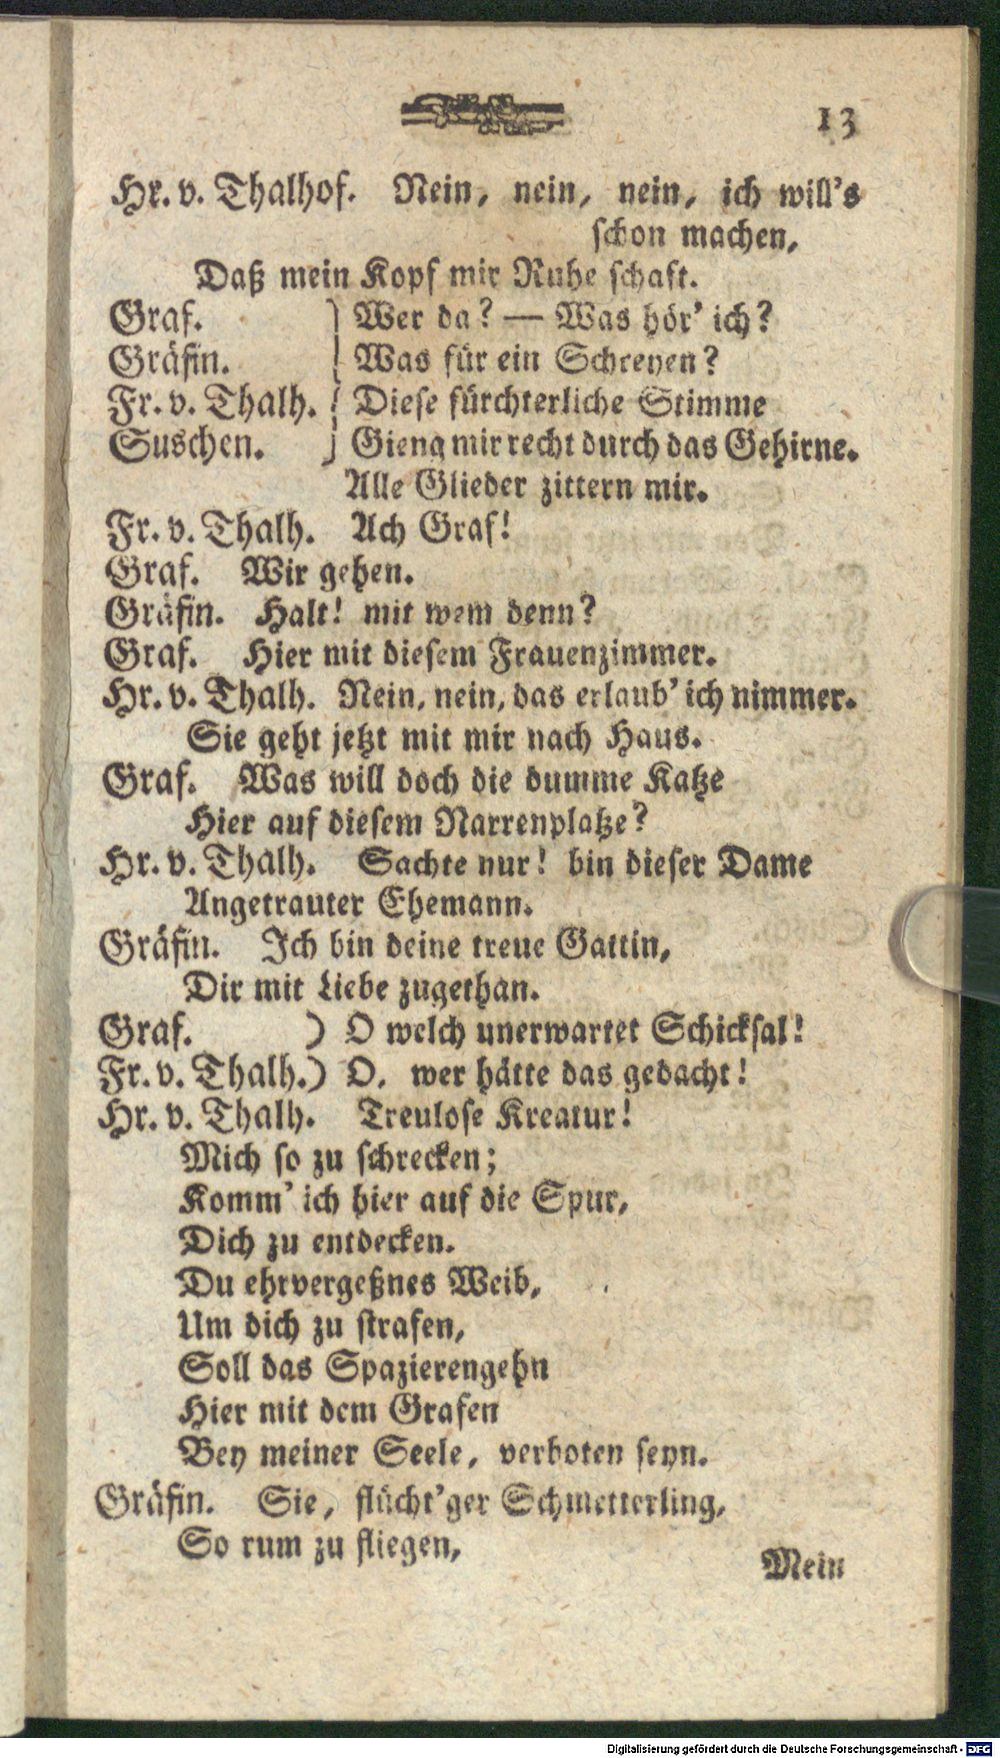 13
Hr. v. Thalhof. Nein, nein, nein, ich will's
schon machen,
Daß mein Kopf mir Ruhe schaft.
Graf. } Wer da? — Was hör' ich?
Gräfin. } Was für ein Schreyen?
Fr. v. Thalh. } Diese fürchterliche Stimme
Suschen. } Gieng mir recht durch das Gehirne.
Alle Glieder zittern mir.
Fr. v. Thalh. Ach Graf!
Graf. Wir gehen.
Gräfin. Halt! mit wem denn?
Graf. Hier mit diesem Frauenzimmer.
Hr. v. Thalh. Nein, nein, das erlaub' ich nimmer.
Sie geht jetzt mit mir nach Haus.
Graf. Was will doch die dumme Katze
Hier auf diesem Narrenplatze?
Hr. v. Thalh. Sachte nur! bin dieser Dame
Angetrauter Ehemann.
Gräfin. Ich bin deine treue Gattin,
Dir mit Liebe zugethan.
Graf. ) O welch unerwartet Schicksal!
Fr. v. Thalh.) O, wer hätte das gedacht!
Hr. v. Thalh. Treulose Kreatur!
Mich so zu schrecken;
Komm' ich hier auf die Spur,
Dich zu entdecken.
Du ehrvergeßnes Weib,
Um dich zu strafen,
Soll das Spazierengehn
Hier mit dem Grafen
Bey meiner Seele, verboten seyn.
Gräfin. Sie, flücht'ger Schmetterling,
So rum zu fliegen,
Mein
Digitalisierung gefördert durch die Deutsche Forschungsgemeinschaft - DFG